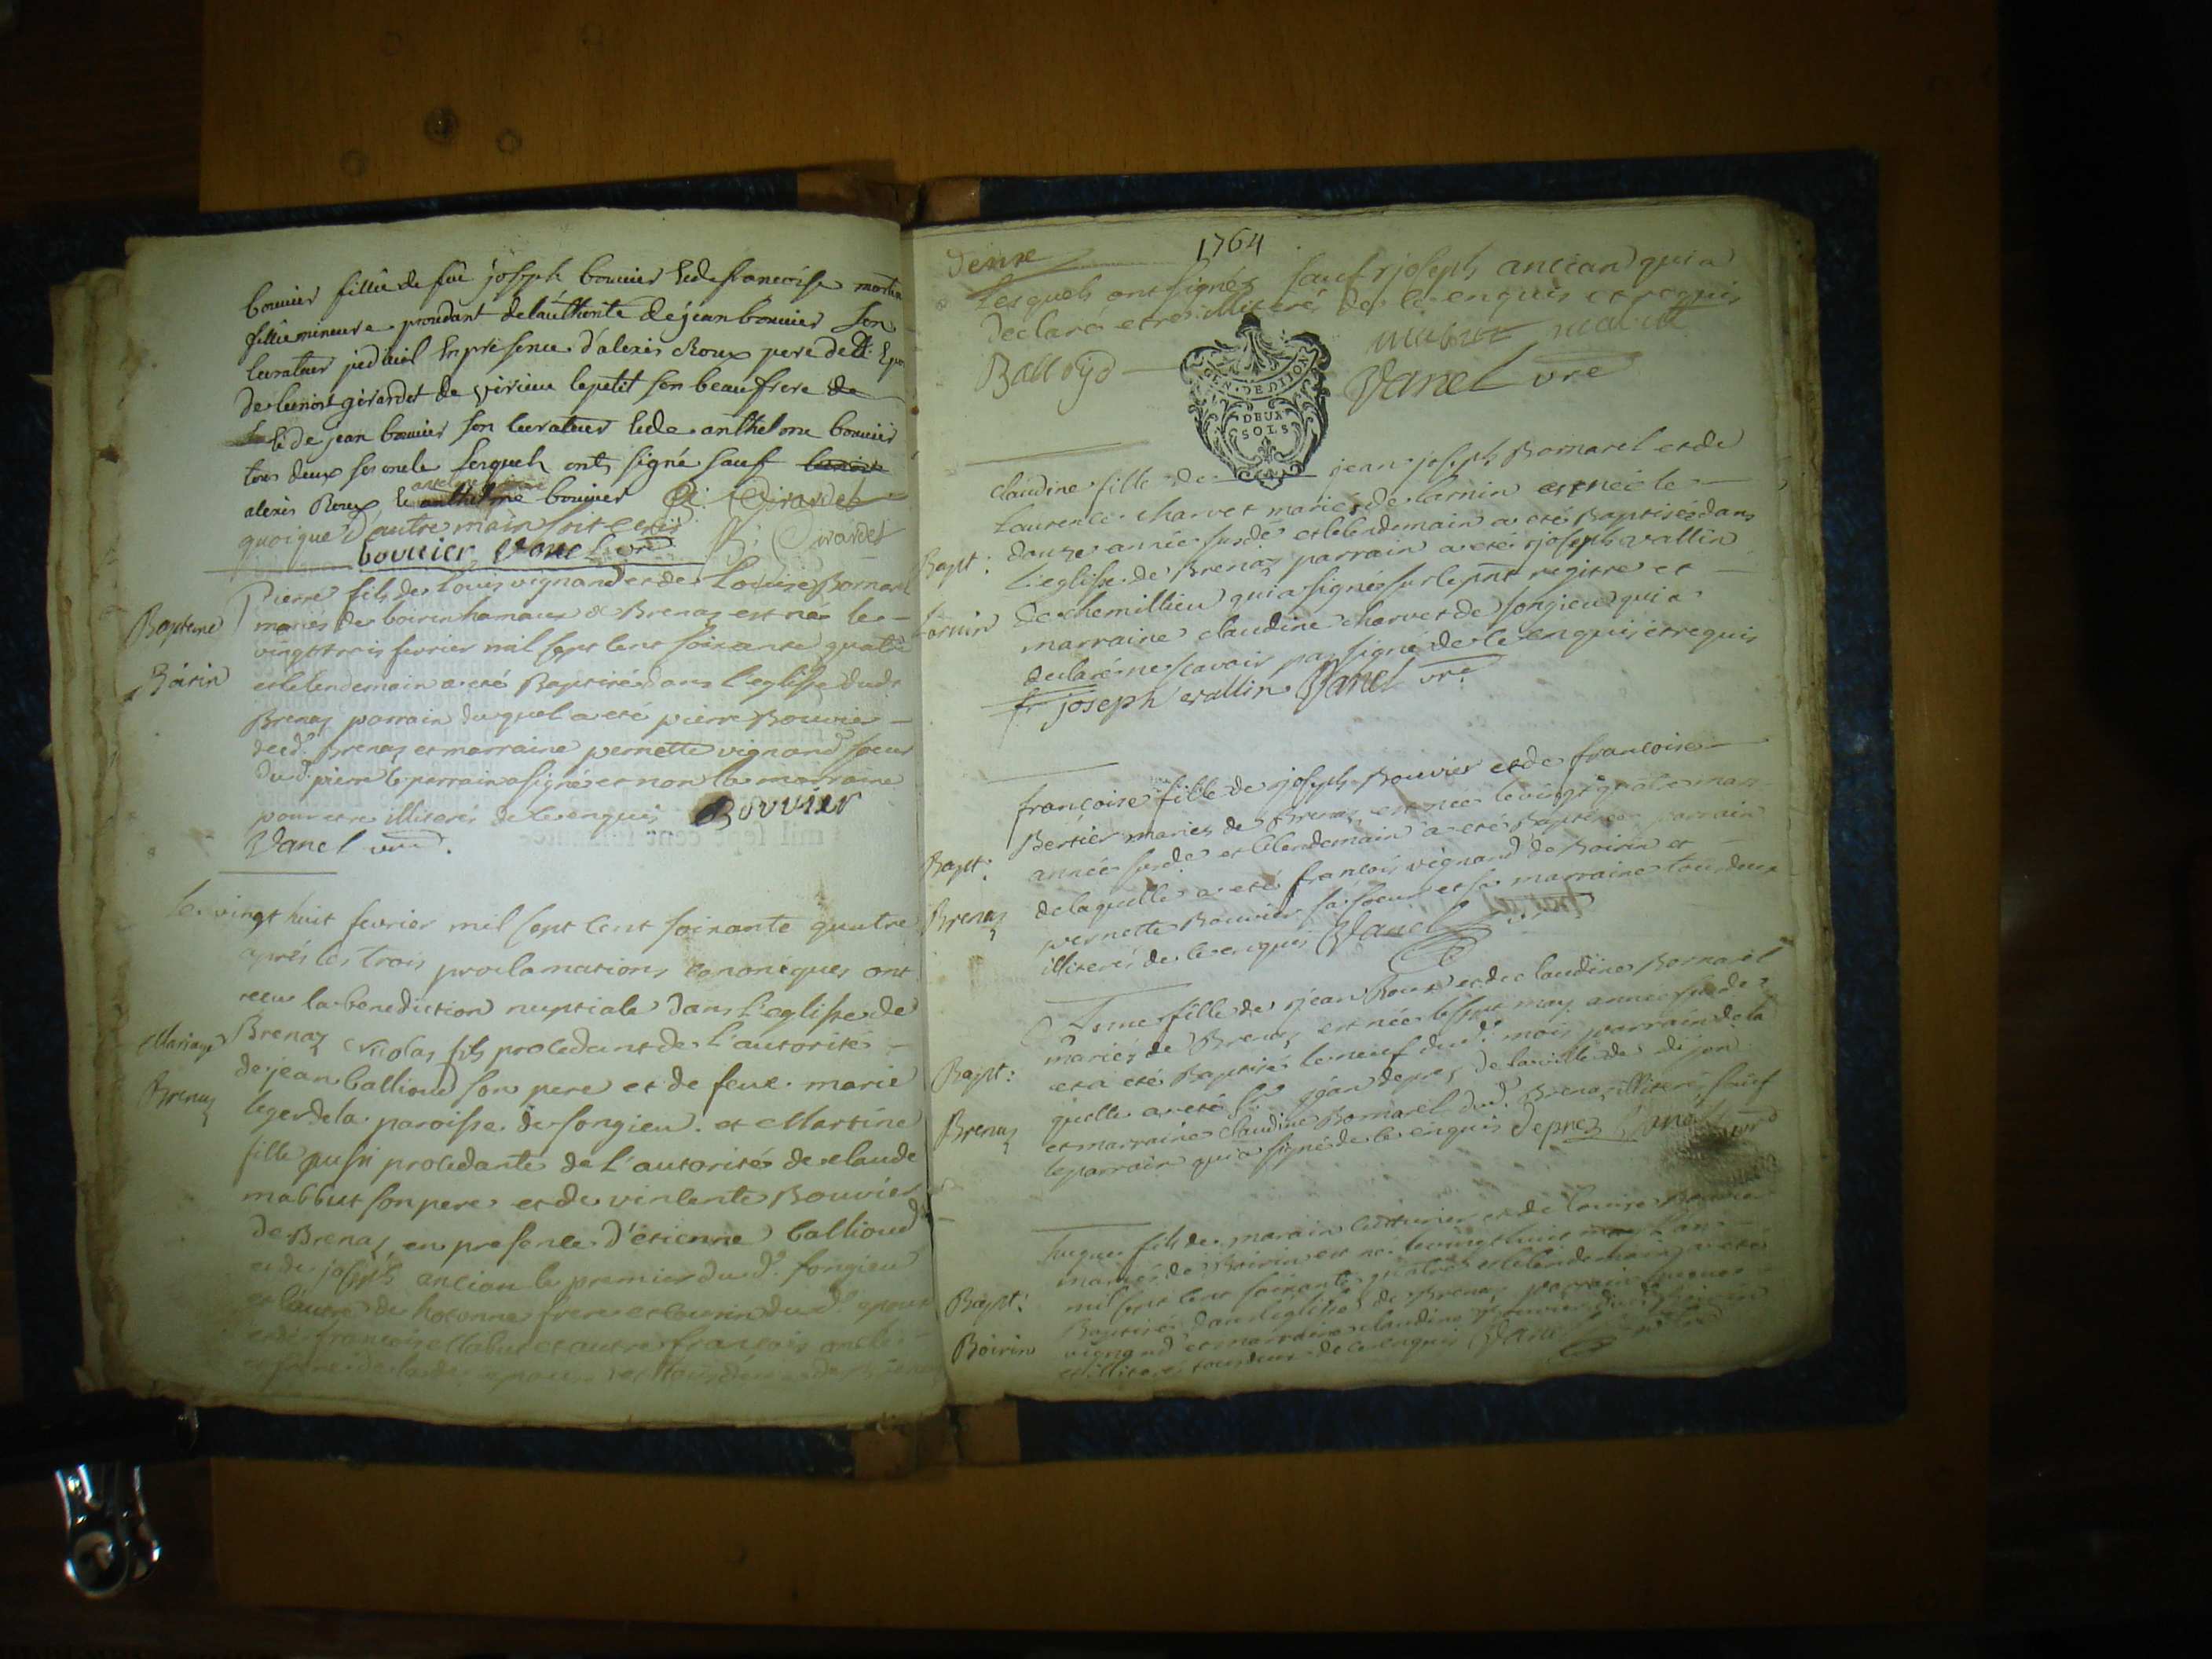 bouvier fillie de feu joseph bouvier & de francoise martin
fillie mineure procedant de lauthorité de jean bouvier son
curateur judiciel en presence d'alexis Roux pere
de benoit girardet de virieu le petit son beaufrere de
& de jean bouvier son curateur & de anthelme bouvier
tous deux ses oncle lesquels ont signé sauf
alexis Roux & bouvier Girardet
quoique d'autre main soit ecrit B: Girardet
bouvier Vanel vre
Pierre fils de Louis vignand et de Louise Bornarel
Bapteme mariés de boirin hamaux de Brenaz est né le
vingt trois fevrier mil sept cent soixante quatre
Boirin et le lendemain a eté Baptisé dans l'eglisse dudt
Brenaz parrain duquel a eté pierre Bouvier
dud. Brenaz et marraine pernette vignand soeur
dud. pierre le parrain a signé et non la marraine
pour etre illiteré de ce enquis Bouvier
Vanel vre.
Le vingt huit fevrier mil sept cent soixante quatre
aprés les trois proclamations canoniques ont
recu la benediction nuptiale dans l'eglisse de
Mariage Brenaz Nicolas fils procedant de l'autorité
de jean Balliod son pere et de feue marie
Brenaz leger de la paroisse de songieu et Martine
fille aussi procedante de l'autorité de claude
mabbut son pere et de vincente Bouvier
de Brenaz en presence d'etienne Balliod
et de joseph ancian le premier dud. songieu
et l'autre de hotonne frere et cousin dud. epoux
et de francois Mabut et autre francois oncle
1764
Lesquels ont signés sauf joseph ancian qui a
declaré etre illiteré de ce enquis et requis
Balloyd
GEN. DE DIJON
DEUX
SOLS
Vanel vre
claudine fille de jean joseph Bornarel et de
Laurence charvet mariés de Larnin est née le
Bapt: douze année susde et le lendemain a eté Baptisée dans
L'eglisse de Brenaz parrain a eté joseph vallin
Larnin de chemillieu qui a signé sur le pnt registre et
marraine claudine charvet de songieu qui a
declaré ne scavoir pas signé de ce enquis et requis
fr joseph vallin Vanel vre
francoise fille de joseph Bouvier et de francoise
Bertier mariés de Brenaz est née le vingt quatre mars
Bapt: année susde et le lendemain a eté Baptisée parrain
de laquelle a eté francois vignand de Boirin et
Brenaz pernette Bouvier sa soeur et sa marraine tous deux
illiterés de ce enquis Vanel
fille de jean Roux et de claudine Bornarel
mariés de Brenaz est née le sept may année susde
Bapt: et a eté Baptisée le neuf dud. mois parrain de la
quelle a eté Sr jean deprez de la ville de dijon
Brenaz et marraine claudine Bornarel dud. Brenaz illiterés sauf
le parrain qui a signé de ce enquis deprez Vanel vre
Jacques fils de marain et de Louise
mariés de Boirin est né le vingt huit may l'an
Bapt: mil sept cent soixante quatre et le lendemain a eté
Baptisé dans l'eglisse de Brenaz parrain jacques
Boirin vignand et marraine claudine
illiterés tous deux de ce enquis Vanel